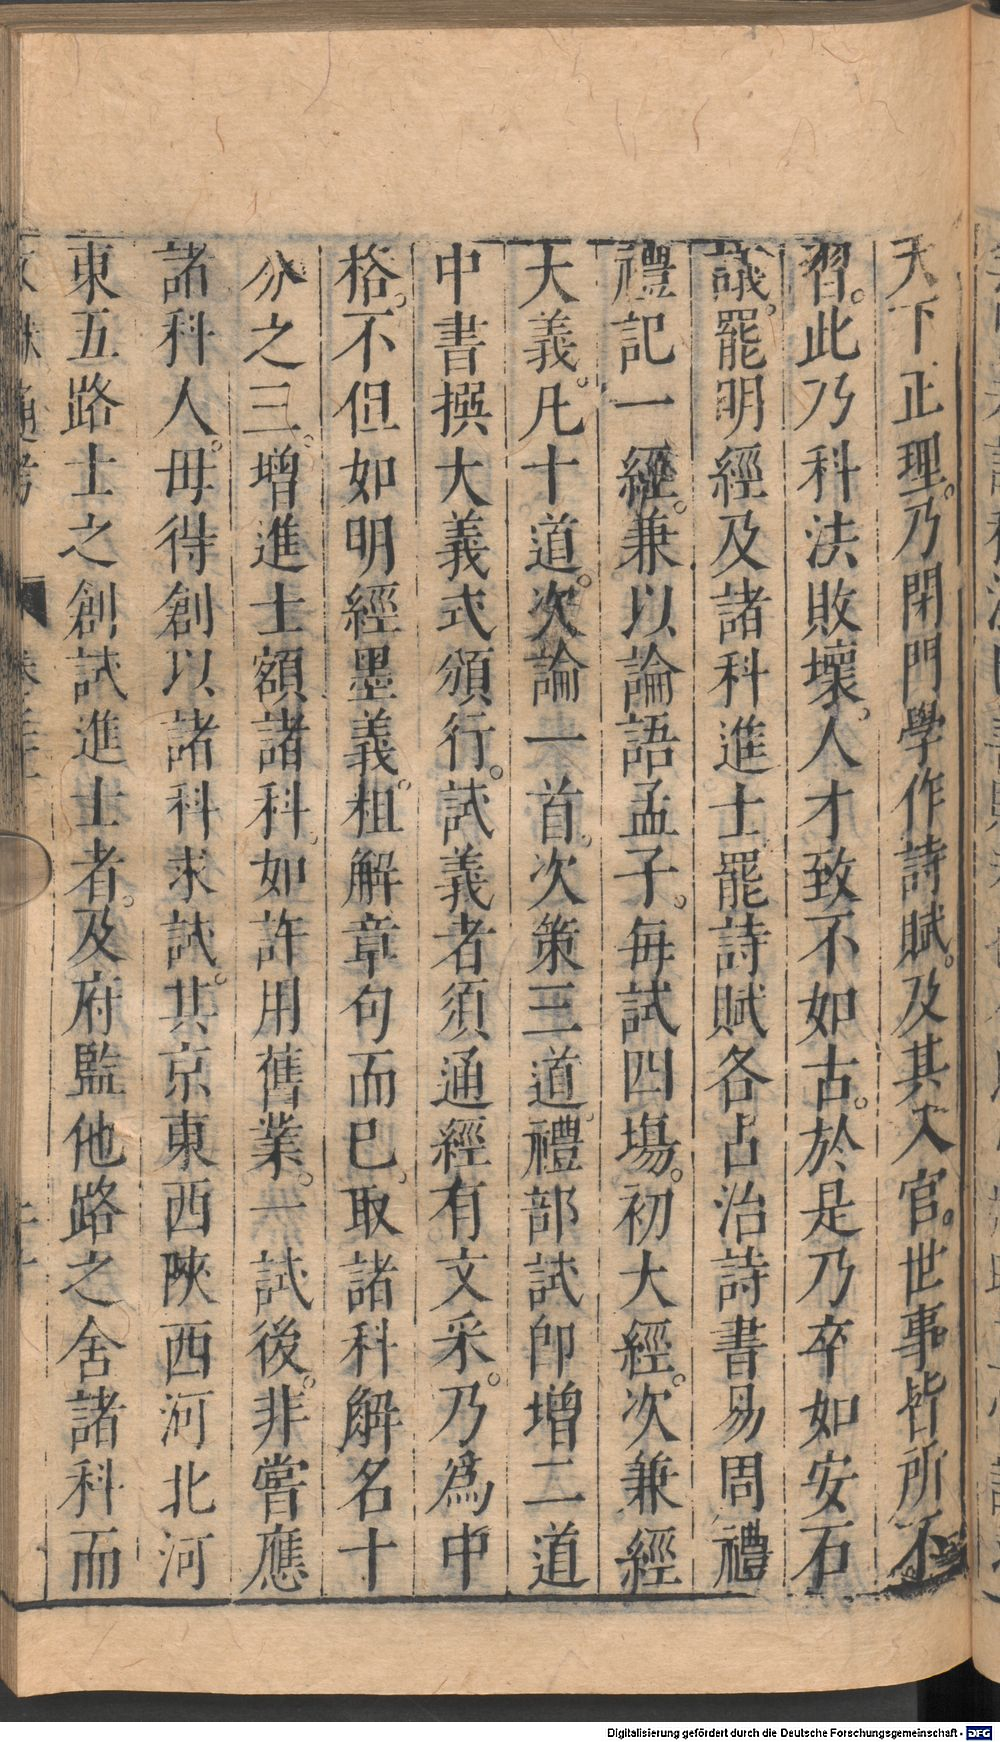 天下正理。乃閉門學作詩賦。及其入官。世事皆所不
習。此乃科法敗壞。人才致不如古。於是乃卒如安石
議。罷明經及諸科進士罷詩賦各占治詩書易周禮
禮記一經。兼以論語孟子。每試四塲。初大經。次兼經
大義。凡十道。次論一首。次策三道。禮部試卽增二道
中書撰大義式頒行。試義者須通經有文采。乃爲中
格。不但如明經墨義。粗解章句而已。取諸科解名十
分之三。增進士額諸科。如許用舊業。一試後。非嘗應
諸科人。毋得創以諸科求試。其京東西陝西河北河
東五路士之創試進士者。及府監他路之舍諸科而
Digitalisierung gefördert durch die Deutsche Forschungsgemeinschaft - DFG